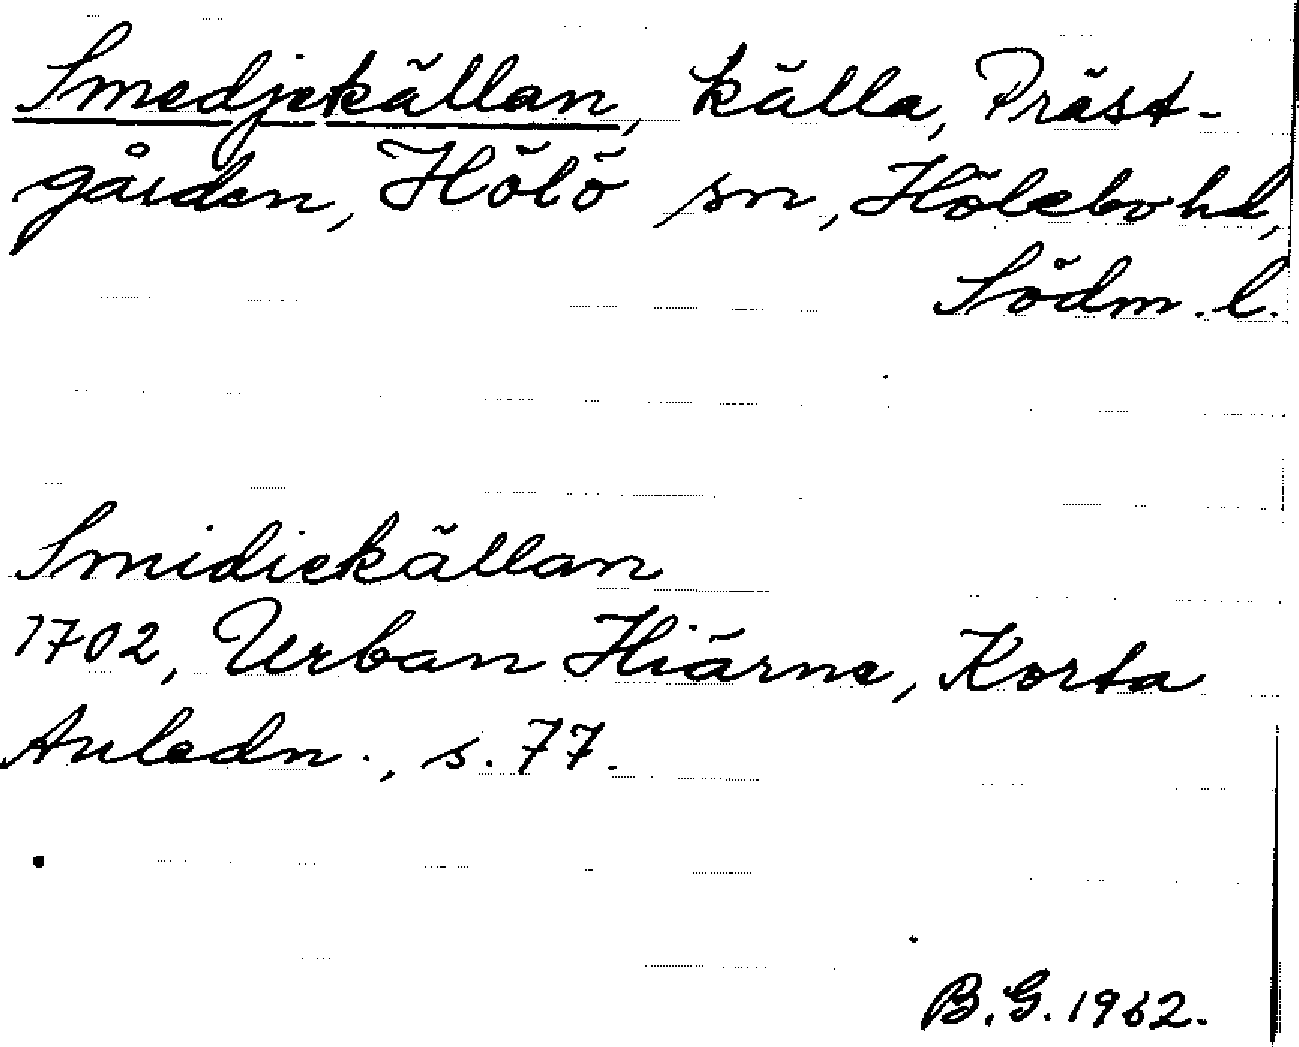 Smedjekällan, källa, Präst-
gården, Hölö sn, Hölebo hd,
Södm. l.
Smidiekällan
1702, Urban Hiärne, Korta
Anledn., s. 77.
B.G. 1962.